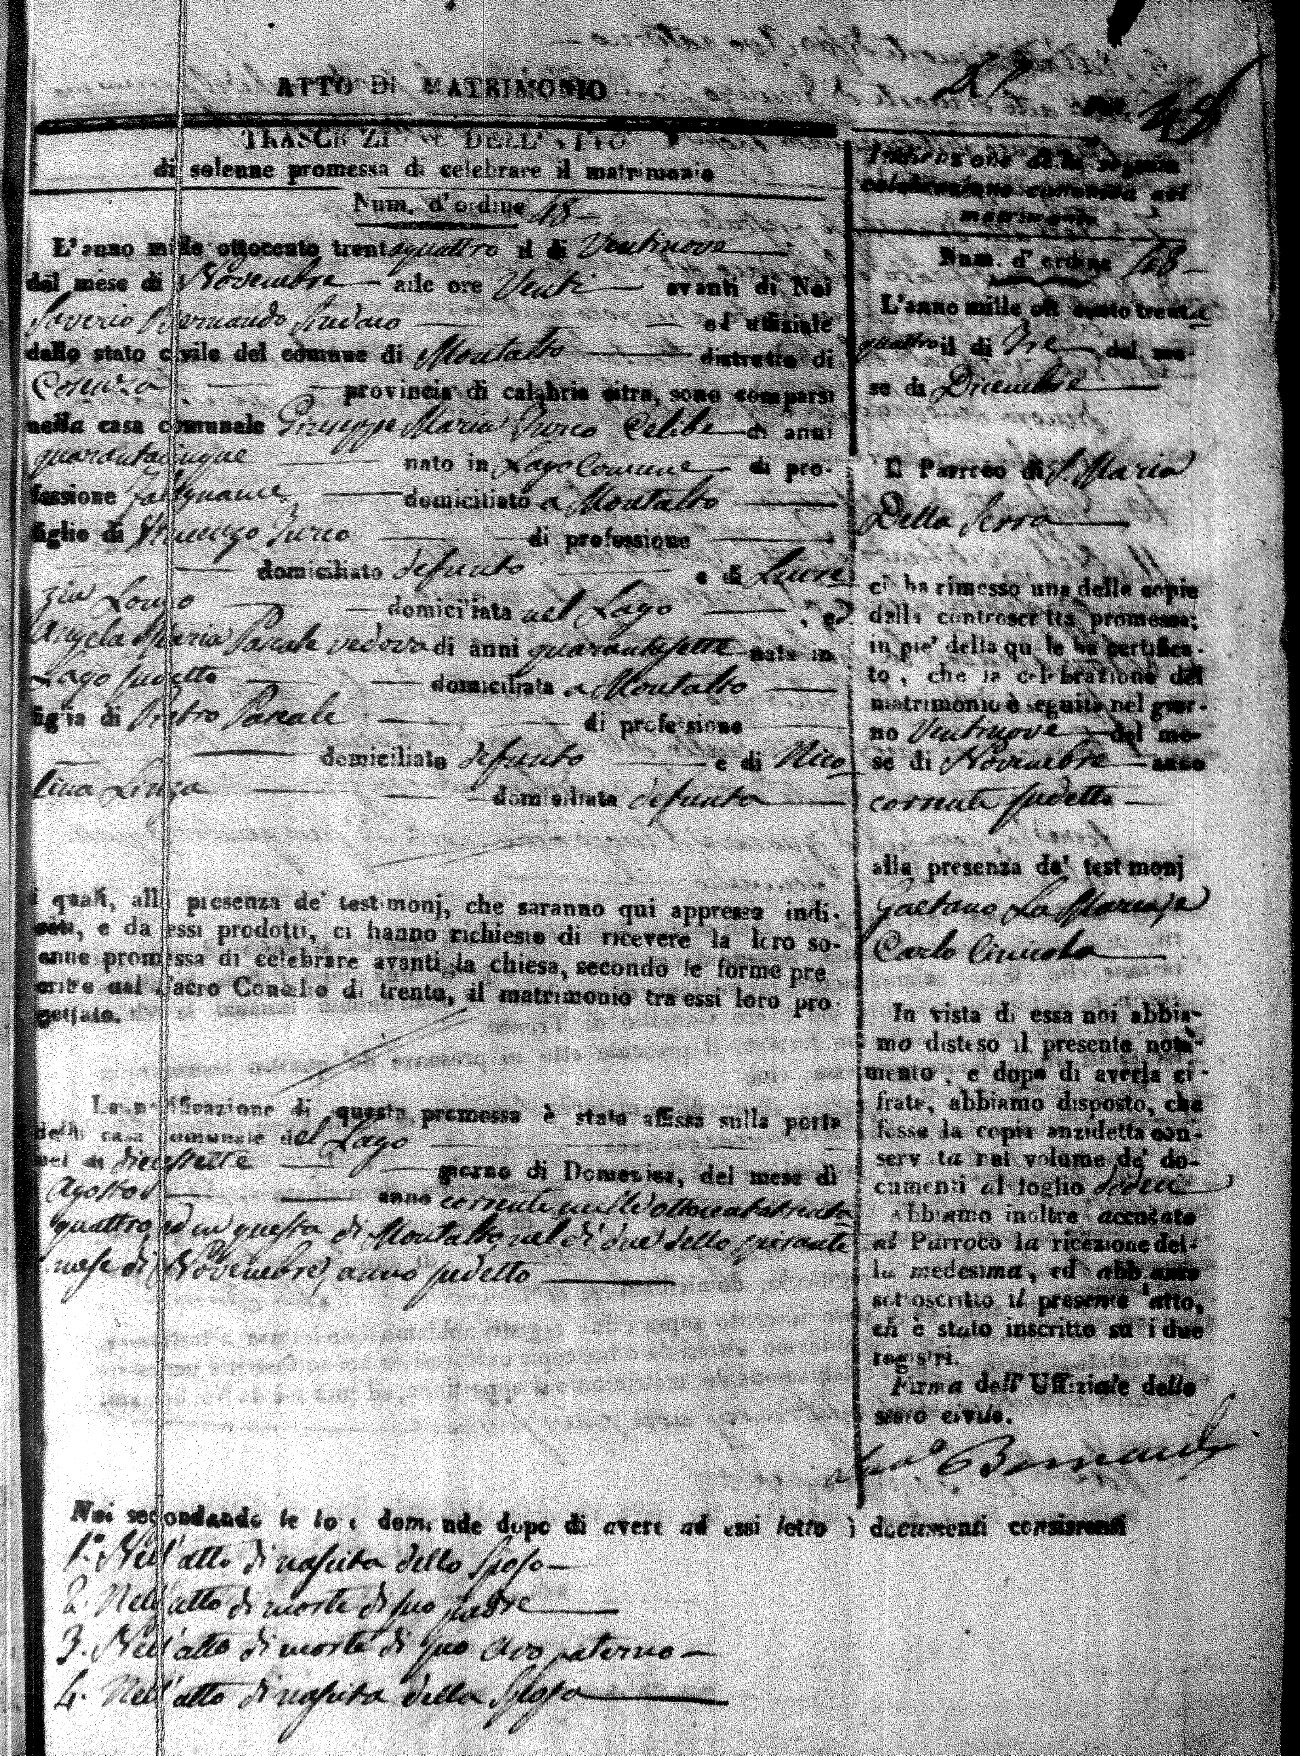 ATTO DI MATRIMONIO
48
TRASCRIZIONE DELL' ATTO
di solenne promessa di celebrare il matrimonio
Num. d'ordine 48
L'anno mille ottocento trentaquattro il di Ventinove
del mese di Novembre alle ore Venti avanti di Noi
Saverio Bernardo ed uffiziale
dello stato civile del comune di Montalto distretto di
Cosenza provincia di calabria citra, sono comparsi
nella casa comunale Giuseppe Maria Turco Celibe di anni
quarantacinque nato in Lago Comune di pro-
fessione Falegname domiciliato a Montalto
figlio di Vincenzo Turco di professione
domiciliato defunto e di Lucre
zia Longo domiciliata nel Lago , ed
Angela Maria Pascale vedova di anni quarantasette nata in
Lago sudetto domiciliata a Montalto
figlia di Pietro Pascale di professione
domiciliato defunto e di Nico
lina domiciliata defunta
i quali, alla presenza de' testimonj, che saranno qui appresso indi-
cati, e da essi prodotti, ci hanno richiesto di ricevere la loro so-
lenne promessa di celebrare avanti la chiesa, secondo le forme pre
scritte dal Sacro Concilio di trento, il matrimonio tra essi loro pro-
gettato.
La notificazione di questa promessa è stata affissa sulla porta
della casa comunale del Lago
nel di diecissette giorno di Domenica, del mese di
Agosto anno corrente mille ottocentotrenta
quattro, ed in questa di Montalto nel di due dello spirante
mese di Novembre anno sudetto
Noi secondando le loro domande dopo di avere ad essi letto i documenti consistenti
1.° Nell'atto di nascita dello Sposo
2. Nell'atto di morte di suo padre
3. Nell'atto di morte di suo Avo paterno
4. Nell'atto di nascita della Sposa
Indicazione della seguita
celebrazione canonica del
matrimonio
Num. d'ordine 48
L'anno mille ottocento trenta
quattro il di Tre del me-
se di Dicembre
Il Parroco di S. Maria
Della Serra
ci ha rimesso una delle copie
della controscritta promessa;
in pie' della quale ha certifica-
to, che la celebrazione del
matrimonio è seguita nel gior-
no Ventinove del me-
se di Novembre anno
corrente sudetto
alla presenza de' testimonj
Gaetano La
Carlo
In vista di essa noi abbia-
mo disteso il presente nota-
mento, e dopo di averla ci-
frata, abbiamo disposto, che
fosse la copia anzidetta con-
servata nel volume de' do-
cumenti al foglio
Abbiamo inoltre accusato
al Parroco la ricezione del-
la medesima, ed abbiamo
sottoscritto il presente atto,
ch'è stato inscritto su i due
registri.
Firma dell' Uffiziale dello
stato civile.
Bernardo